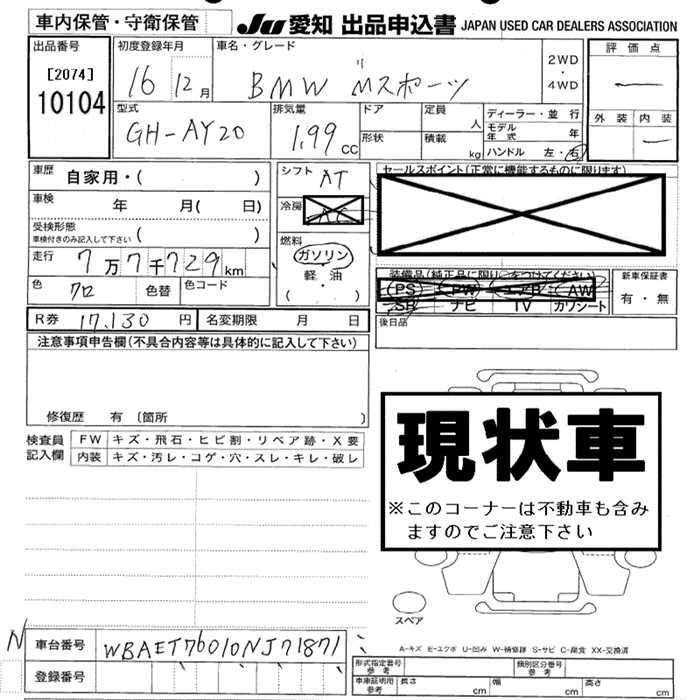 車内保管・守衛保管 JU 愛知 出品申込書 JAPAN USED CAR DEALERS ASSOCIATION
出品番号 初度登録年月 車名・グレード 2WD・4WD 評価点
[2074] 10104
16 12月 BMW Mスポーツ
型式 排気量 ドア 定員 人 ディーラー・並行 外装 内装
GH-AY20 1.99 cc 形状 積載 kg モデル年式 年
ハンドル 左・右
車歴 自家用・( ) シフト AT セールスポイント(正常に機能するものに限ります)
車検 年 月( 日) 冷房 AC
受検形態 車検付きのみ記入して下さい ( ) 燃料 ガソリン 軽・油 ( ・ )
走行 7万7千729km 装備品(純正品に限り○をつけてください) 新車保証書
色 クロ 色替 色コード PS PW エアB AW 有・無
SR ナビ TV カワシート
R券 17,130 円 名変期限 月 日 後日品
注意事項申告欄(不具合内容等は具体的に記入して下さい)
修復歴 有 〔箇所 〕
検査員記入欄 FW キズ・飛石・ヒビ割・リペア跡・X要
内装 キズ・汚レ・コゲ・穴・スレ・キレ・破レ
現状車
※このコーナーは不動車も含み
ますのでご注意下さい
スペア
N 車台番号 WBAET76010NJ71871
A-キズ E-エクボ U-凹み W-補修跡 S-サビ C-腐食 XX-交換済
登録番号 型式指定番号 参考 類別区分番号 参考
車庫証明用 参考 長さ cm 幅 cm 高さ cm